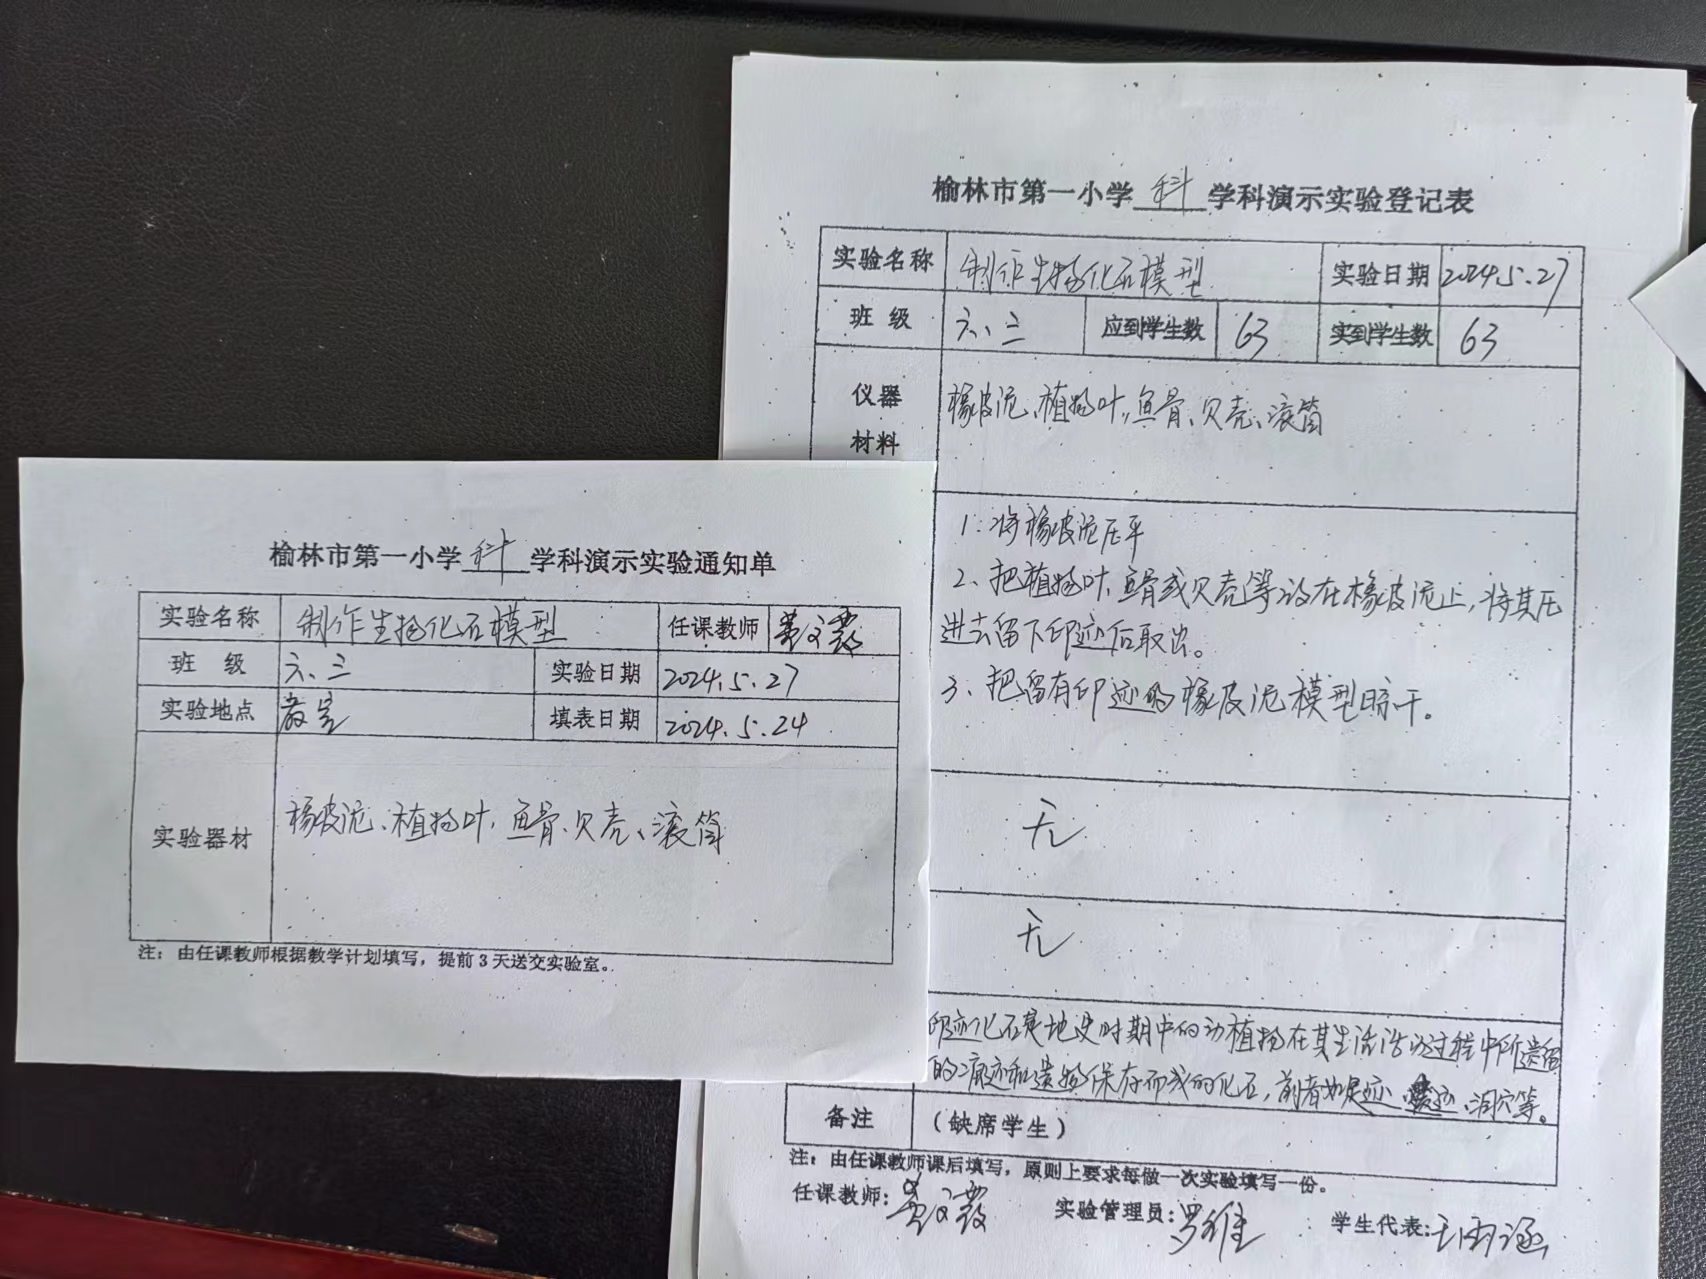 榆林市第一小学 科 学科演示实验通知单
实验名称 制作生物化石模型 任课教师
班 级 六、三 实验日期 2024.5.27
实验地点 教室 填表日期 2024.5.24
实验器材 橡皮泥、植物叶、鱼骨、贝壳、滚筒
注：由任课教师根据教学计划填写，提前3天送交实验室。
榆林市第一小学 科 学科演示实验登记表
实验名称 制作生物化石模型 实验日期 2024.5.27
班 级 六、三 应到学生数 63 实到学生数 63
仪器
材料
橡皮泥、植物叶、鱼骨、贝壳、滚筒
1.将橡皮泥压平
2、把植物叶、鱼骨或贝壳等放在橡皮泥上，将其压
进去留下印迹后取出。
3、把留有印迹的橡皮泥模型晾干。
无
无
印迹化石是地史时期中的动植物在其生活活动过程中所遗留
的痕迹和遗物保存而成的化石，前者如足迹、洞穴等。
备注 （缺席学生）
注：由任课教师课后填写，原则上要求每做一次实验填写一份。
任课教师： 实验管理员：罗维 学生代表：